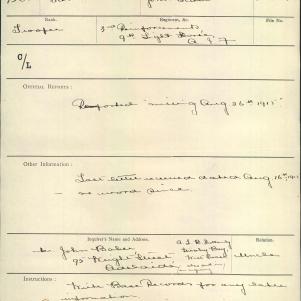 Rank.
Regiment, &c.
File No.
Trooper
3rd Reinforcements
9th Light Horse
A I F
C/L
OFFICIAL REPORTS :
Reported missing Aug 26th 1915
Other Information :
Last letter received dated Aug 16th, 191
— no word since.
Inquirer's Name and Address.
Relation.
John Baker
95 Wright Street
Adelaide
Uncle
Instructions :
Write Base Records for any later
information